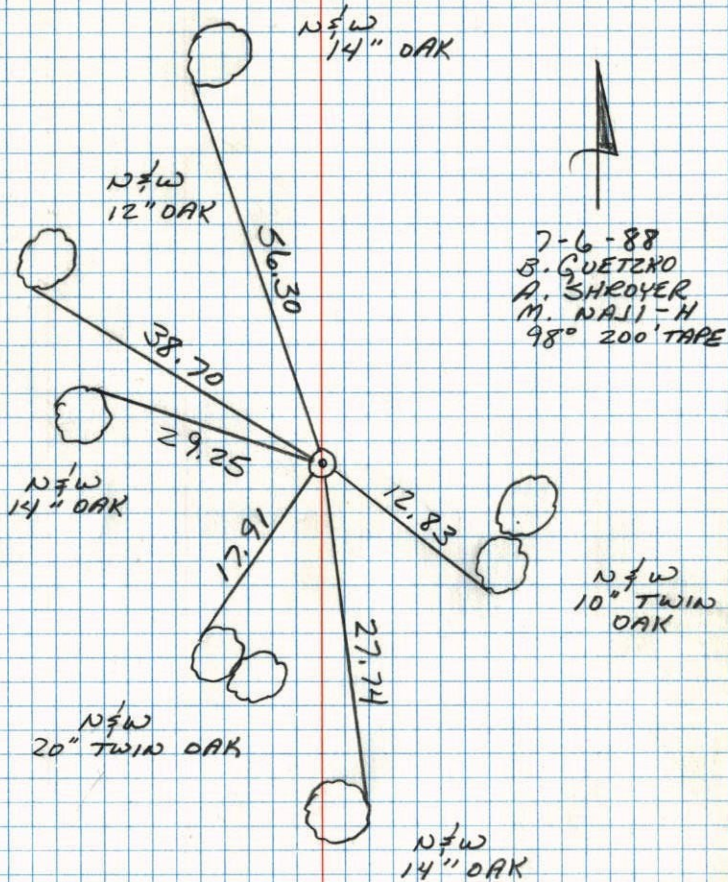 N & W
14" OAK
N & W
12" OAK
7-6-88
B. GUETZKO
A. SHROYER
M. NAJI-H
98° 200' TAPE
56.30
38.70
29.25
N & W
14" OAK
12.83
17.91
N & W
10" TWIN
OAK
27.74
N & W
20" TWIN OAK
N & W
14" OAK